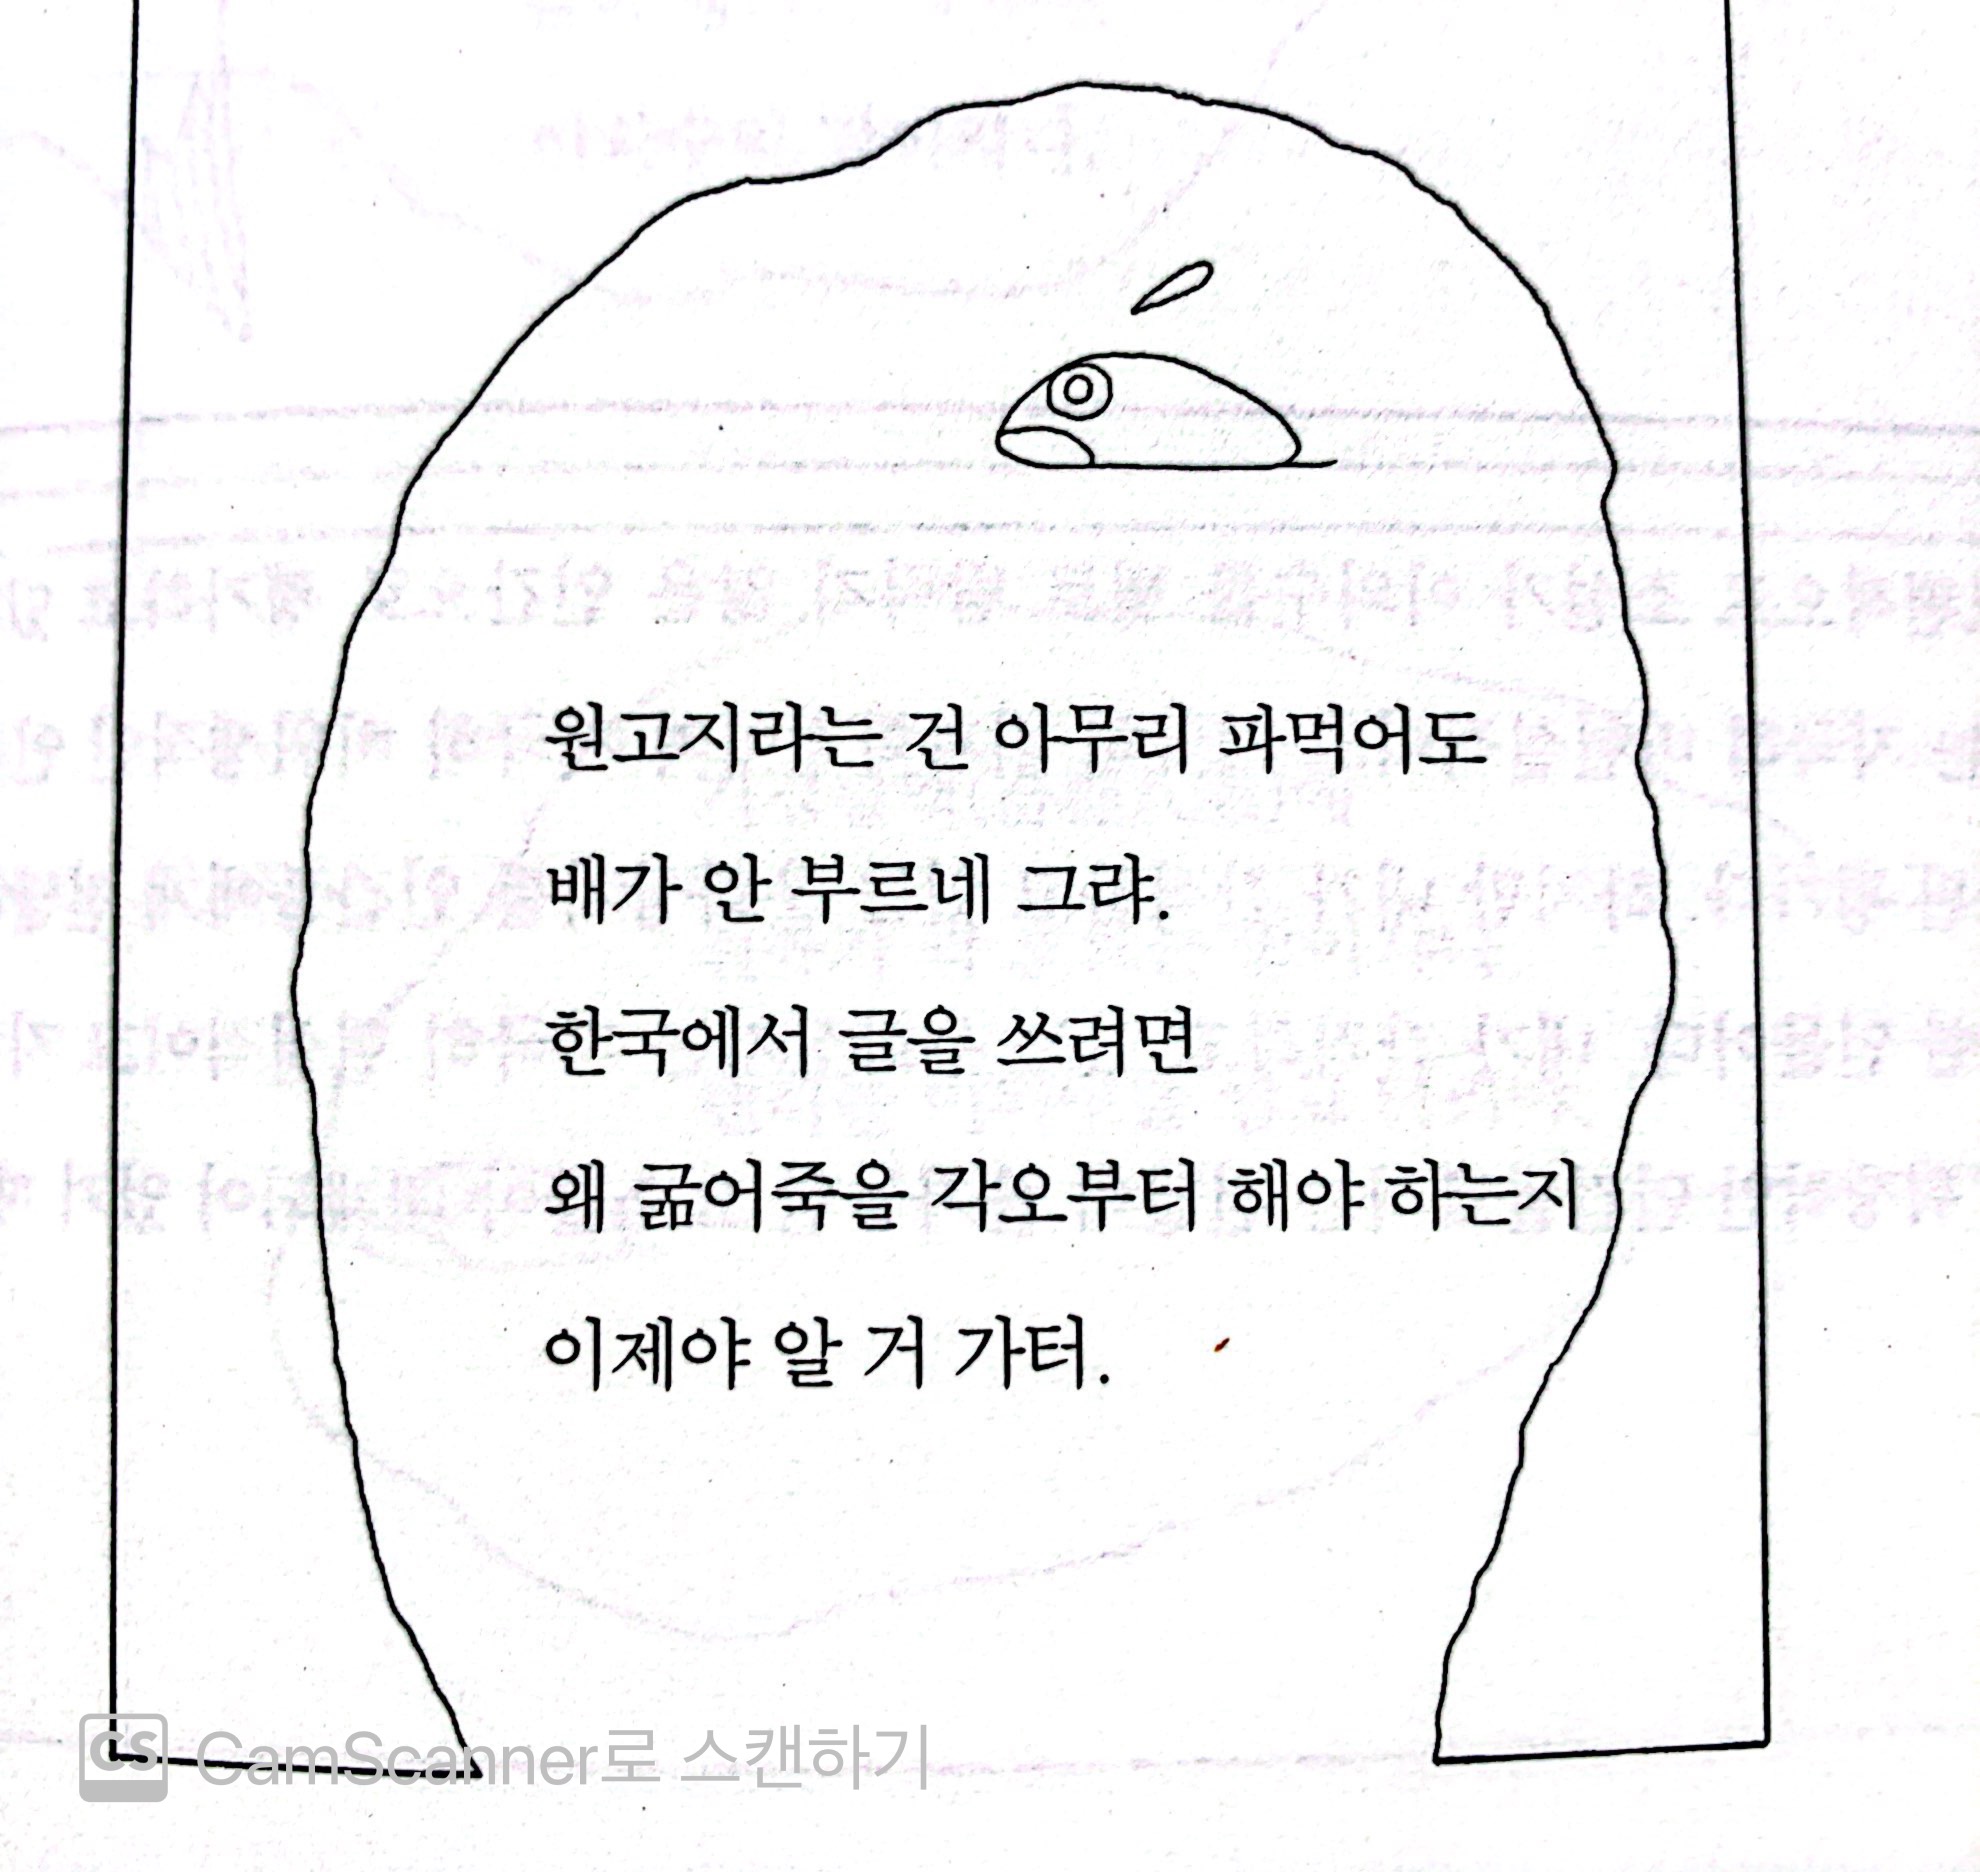 원고지라는 건 아무리 파먹어도
배가 안 부르네 그랴.
한국에서 글을 쓰려면
왜 굶어죽을 각오부터 해야 하는지
이제야 알 거 가터.
CS CamScanner로 스캔하기